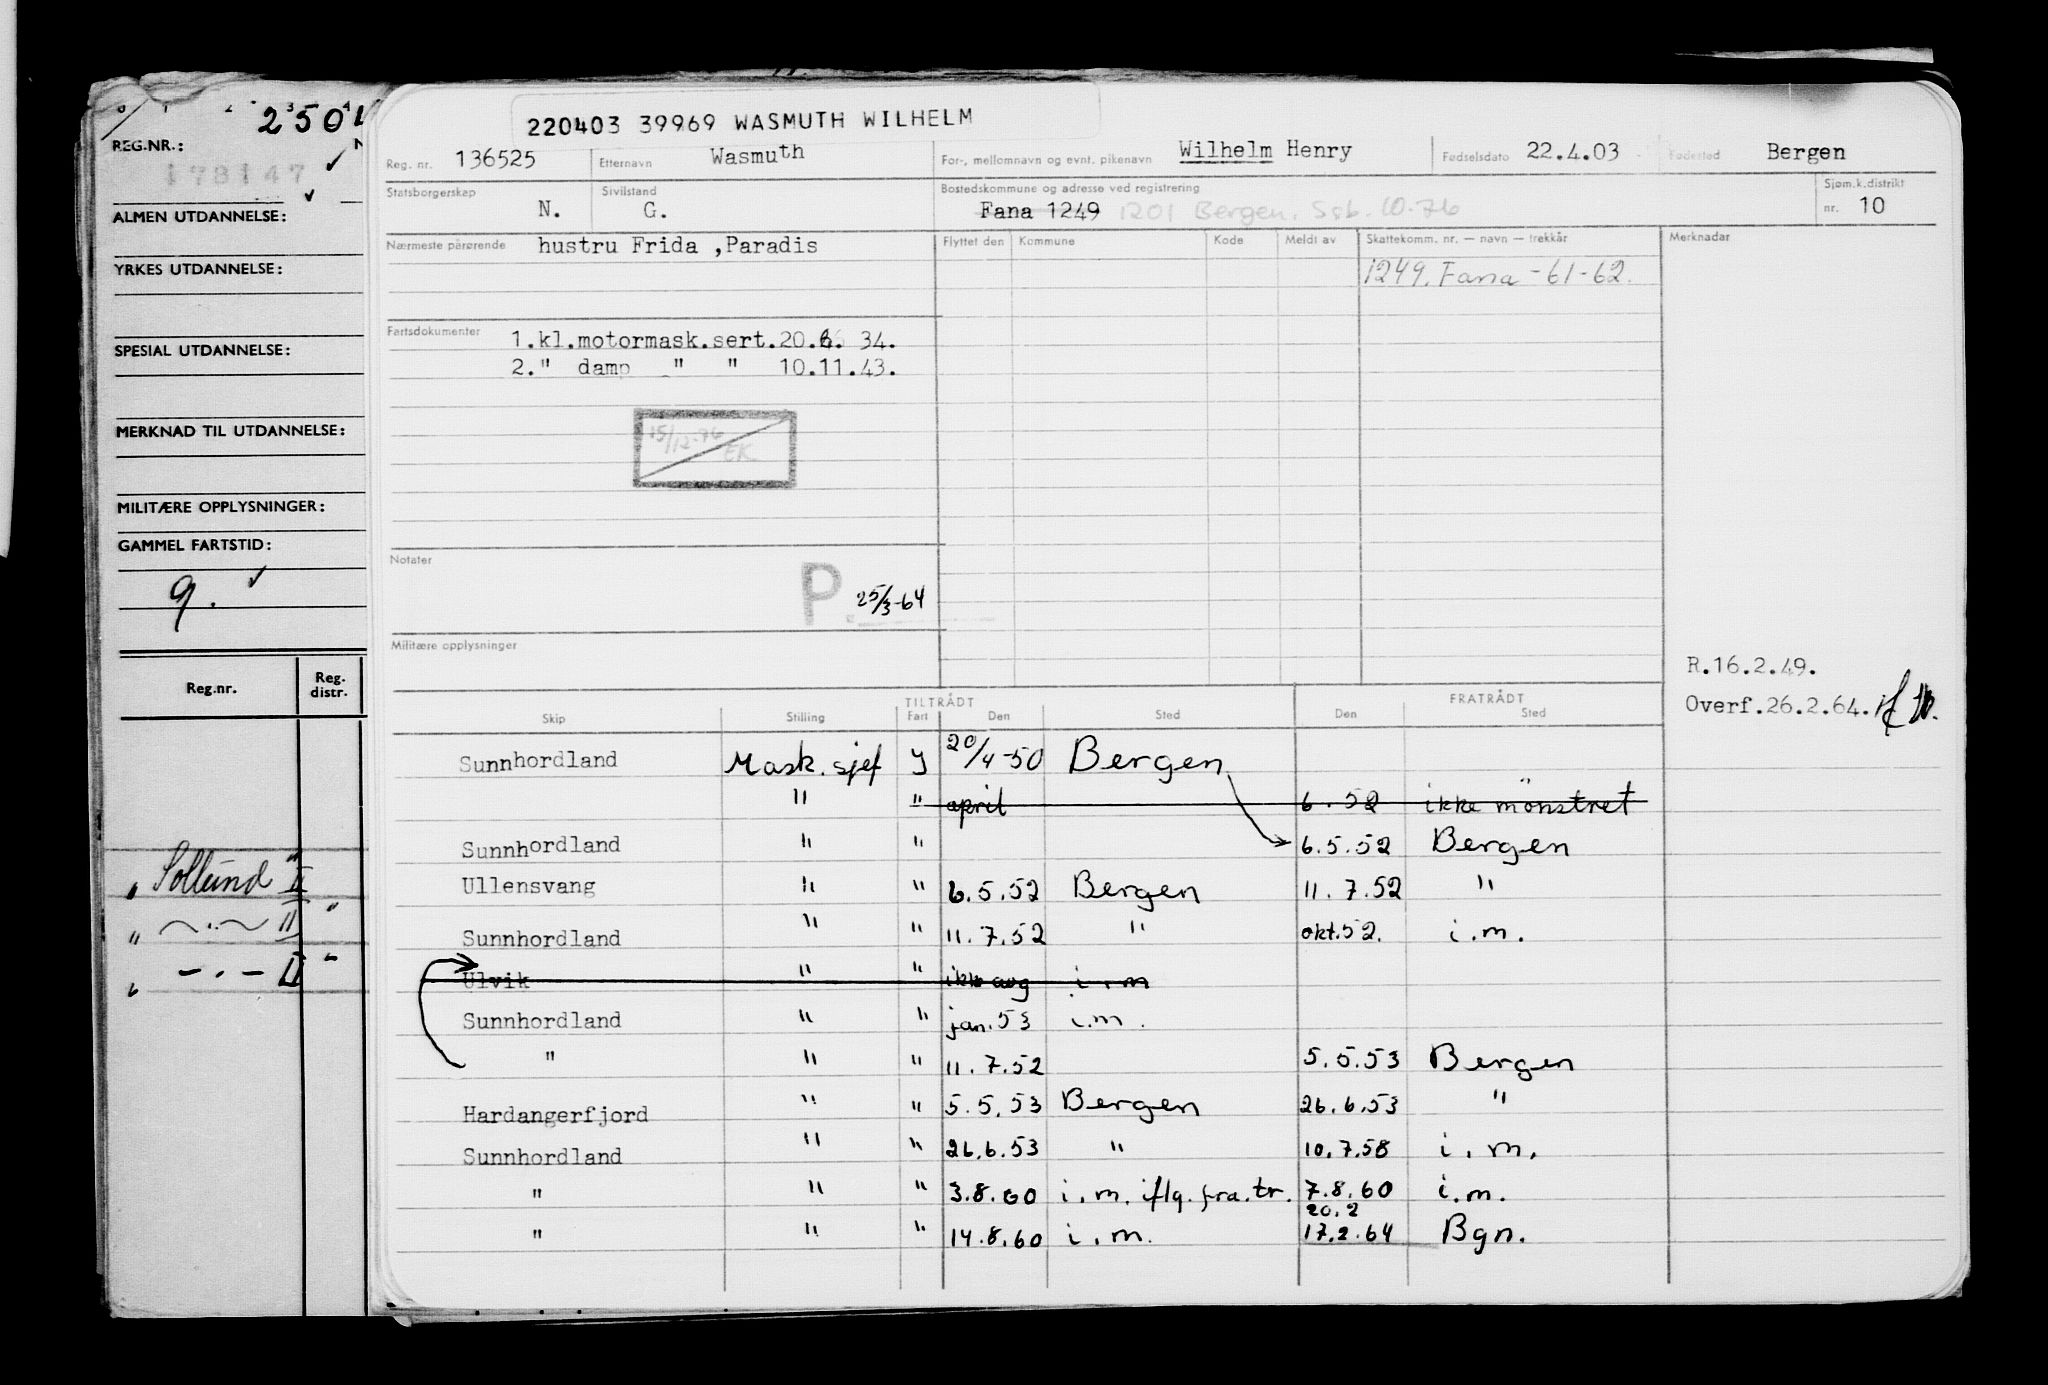 2504
REG.NR.:
173147
ALMEN UTDANNELSE:
YRKES UTDANNELSE:
SPESIAL UTDANNELSE:
MERKNAD TIL UTDANNELSE:
MILITÆRE OPPLYSNINGER:
GAMMEL FARTSTID:
9.
Reg.nr. Reg. distr.
" Sollund " II
" II "
" II "
220403 39969 WASMUTH WILHELM
Reg. nr. 136525 Etternavn Wasmuth For-, mellomnavn og evnt. pikenavn Wilhelm Henry Fødselsdato 22.4.03 Fødested Bergen
Statsborgerskap N. Sivilstand G. Bostedskommune og adresse ved registrering Fana 1249 1201 Bergen. Ssb. 10.76 Sjøm.k.distrikt nr. 10
Nærmeste pårørende hustru Frida ,Paradis Flyttet den Kommune Kode Meldt av Skattekomm. nr. — navn — trekkår Merknadar
1249. Fana -61-62.
Fartsdokumenter 1.kl.motormask.sert.20.6. 34.
2." damp " " 10.11.43.
15/12-76 EK
Notater P. 25/3-64
Militære opplysninger
R.16.2.49.
Overf.26.2.64.
TILTRÅDT FRATRÅDT
Skip Stilling Fart Den Sted Den Sted
Sunnhordland Mask. sjef y 20/4-50 Bergen
" " april 6.52 ikke mönstret
Sunnhordland " " 6.5.52 Bergen
Ullensvang " " 6.5.52 Bergen 11.7.52 "
Sunnhordland " " 11.7.52 " okt.52. i.m.
Ulvik " " ikke avg i.m
Sunnhordland " " jan.53 i.m.
" " " 11.7.52 5.5.53 Bergen
Hardangerfjord " " 5.5.53 Bergen 26.6.53 "
Sunnhordland " " 26.6.53 " 10.7.58 i.m.
" " " 3.8.60 i.m. iflg. fra.tr. 7.8.60 i.m.
20.2
" " " 14.8.60 i.m. 17.2.64 Bgn.